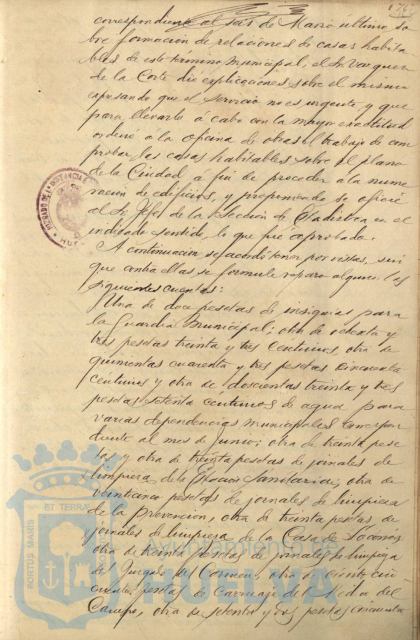 176
correspondiente al mes de Marzo ultimo so
bre formacion de relaciones de casas habita
bles de este termino municipal, el Sr Vazquez
de la Corte dió explicaciones sobre el mismo
espresando que el servicio no es urgente, y que
para llevarlo á cabo con la mayor exactitud
ordenó á la oficina de obras el trabajo de com
probar las casas habitables sobre el plano
de la Ciudad á fin de proceder á la nume
racion de edificios, y proponiendo se oficie
al Sr Jefe de la Seccion de Estadistica en el
indicado sentido, lo que fué aprobado.
A continuacion se
que contra ellas se formule reparo alguno las
siguientes cuentas:
Una de doce pesetas de insignias para
la Guardia Municipal; otra de ochenta y
tres pesetas treinta y tres centimos, otra de
quinientas cuarenta y tres pesetas cincuenta
centimos y otra de doscientas treinta y tres
pesetas setenta centimos de agua para
varias dependencias municipales correspon
diente al mes de Junio; otra de treinta pese
tas y otra de treinta pesetas de jornales de
limpieza de la Sanitaria; otra de
veinticinco pesetas de jornales de limpieza
de la Prevencion, otra de treinta pesetas de
jornales de limpieza de la Casa de Socorro
otra de treinta pesetas de jornales de limpieza
del Juzgado del Carmen, otra de ciento cin
cuenta pesetas de carruaje del
Campo, otra de setenta y dos pesetas cincuenta
PORTUS MARIS
ET TERRAE
HUELVA